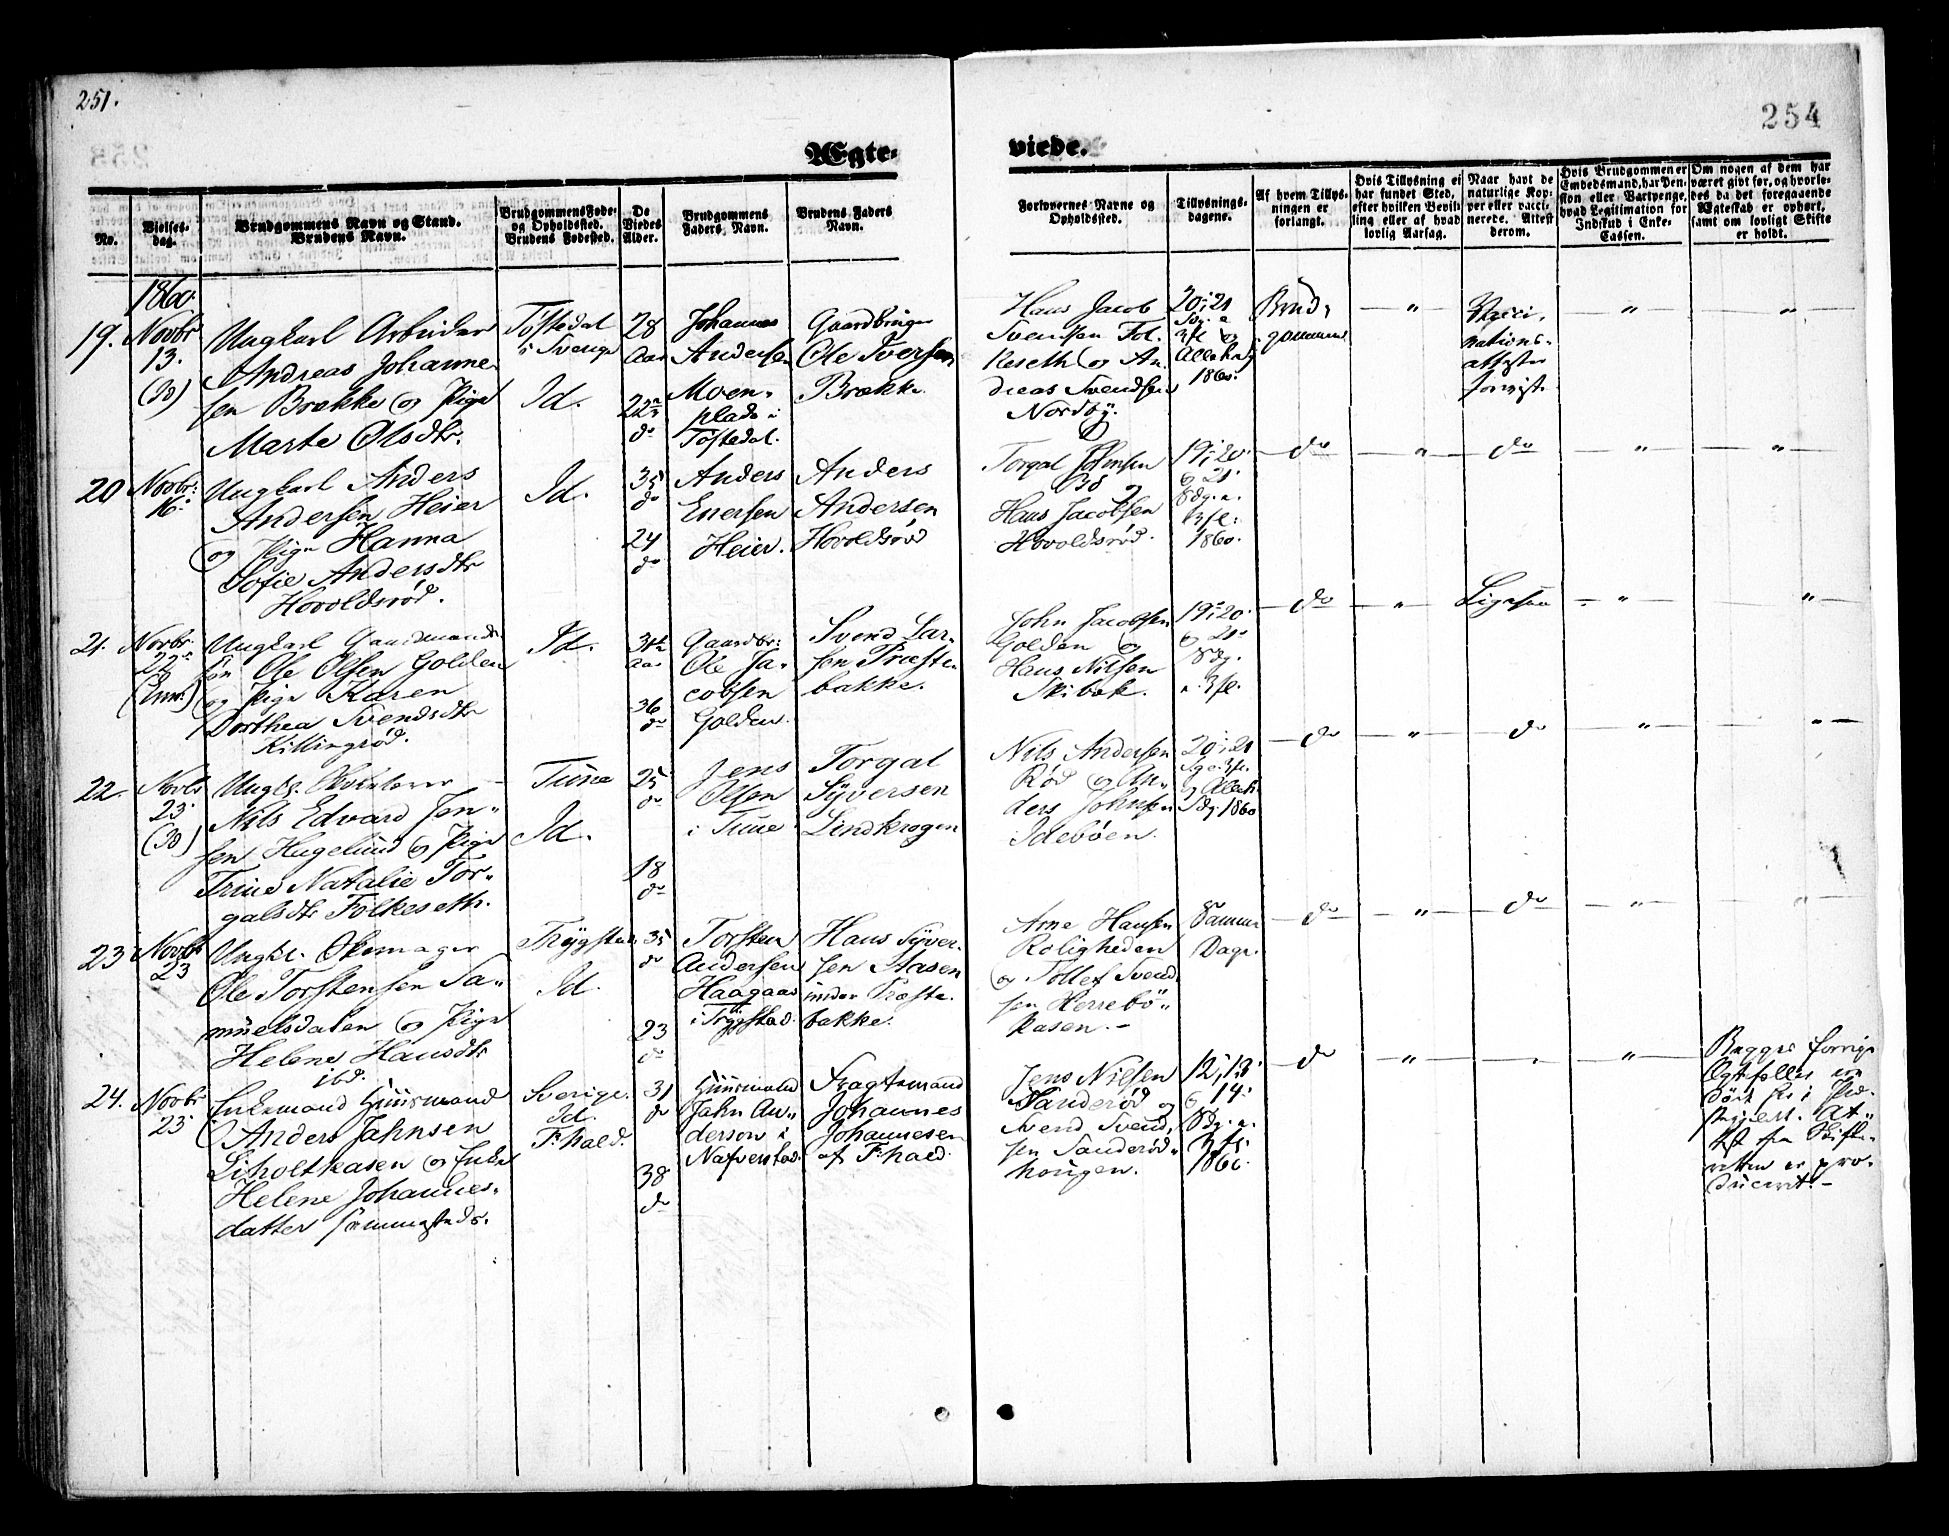 251.
254
Ægte-
viede.
No.
Vielses-
dag.
Brudgommens Navn og Stand.
Brudens Navn.
Brudgommens Fode-
og Opholdssted.
Brudens Fodested.
De
Viedes
Alder.
Brudgommens
Faders Navn.
Brudens Faders
Navn.
Forlovernes Navne og
Opholdssted.
Tillysnings-
dagene.
Af hvem Tillys-
ningen er
forlangt.
Hvis Tillysning ei
har fundet Sted,
efter hvilken Bevil-
ling eller af hvad
lovlig Aarsag.
Naar havt de
naturlige Kop-
per eller vacci-
nerede. Attest
derom.
Hvis Brudgommen er
Embedsmand, har Pen-
sion eller Vartpenge,
hvad Legitimation for
Indskud i Enke-
Cassen.
Om nogen af dem har
været givt før, og hvorle-
des da det foregaaende
Ægteskab er ophørt,
samt om lovligt Skifte
er holdt.
1860.
19.
Novbr
13.
(30)
Ungkarl Arbeider
Andreas Johanne-
sen Brække og Pige
Marte Olsdtr.
Töftedal
i Sverige
Id.
28
Aar
22
do
Johannes
Andersen
Moen-
plads i
Töftedal.
Gaardbruger
Ole Iversen
Brække
Hans Jacob
Svensen Fol-
keseth og An-
dreas Svendsen
Nordby.
20, 21
Sdg. e.
Tfl og
Alleh.
1860.
Brud-
gommen
— " —
Vacci-
nations-
attester
forevist
"
"
20
Novbr:
16
Ungkarl Anders
Andersen Heier
og Pige Hanna
Sofie Andersdtr
Hovoldsrød.
Id.
35
do
24
do
Anders
Enersen
Heier.
Anders
Andersen
Hovoldsrød
Torgal Johnsen
Bø og
Hans Jacobsen
Hovoldsrød.
19, 20
og 21
Sdg. e.
Tfl.
1860.
do
"
do
"
"
21.
Novbr.
22
Ungkarl Gaardmands-
søn Ole Olsen Golden
og Pige Karen
Dorthea Svendsdtr
Killingrød.
Id.
Aar
36
do
Gaardbr:
Ole Ja-
cobsen
Golden.
Svend Lar-
sen Præste-
bakke.
John Jacobsen
Golden og
Hans Nilsen
Skibæk.
19, 20
og 21
Sdg.
e. Tfl.
do
"
Ligesaa
"
"
22.
Novbr
23
(30)
Ungk.
Nils Edvard Jen-
sen Hugelund og Pige
Trine Natalie Tor-
galsdtr Folkeseth.
Tune
Id.
25
do
18
do
Jens
Olsen
i Tune
Torgal
Syversen
Lindkrogen
Nils Andersen
Rød og An-
ders Johnsen
Idebøen.
20, 21
Sdg e. Tfl.
og Alleh.
Sdg. 1860
do
"
do
"
"
23
Novbr
23
Ungk. Skomager
Ole Torstensen Sa-
muelsdalen og Pige
Helene Hansdtr
ibd.
Trygstad
Id.
35
do
23
do
Torsten
Andersen
Haagaas
i Trygstad.
Hans Syver-
sen Aasen
under Præste-
bakke.
Arne Hansen
Roligheden
og Tollef Svend-
sen Herrebö-
kasen. -
Samme
Dage.
do
"
do
"
"
24.
Novbr
23
Enkemand Huusmand
Anders Jahnsen
Liholtkasen og Enke
Helene Johannes-
datter sammesteds.
Sverige.
Id.
F:hald.
31
do
38
do
Huusmand
Jahn An-
derson i
Nafverstad.
Fragtemand
Johannes
Johannesen
af F:hald.
Jens Nilsen
Sanderød og
Svend Svend-
sen Sanderød-
hougen.
12, 13
og 14
Sdg. e.
Tfl.
1860.
do
"
"
Begges forrige
Ægtefæller ere
døde
At-
test fra Skifte-
retten er pro-
duceret. -